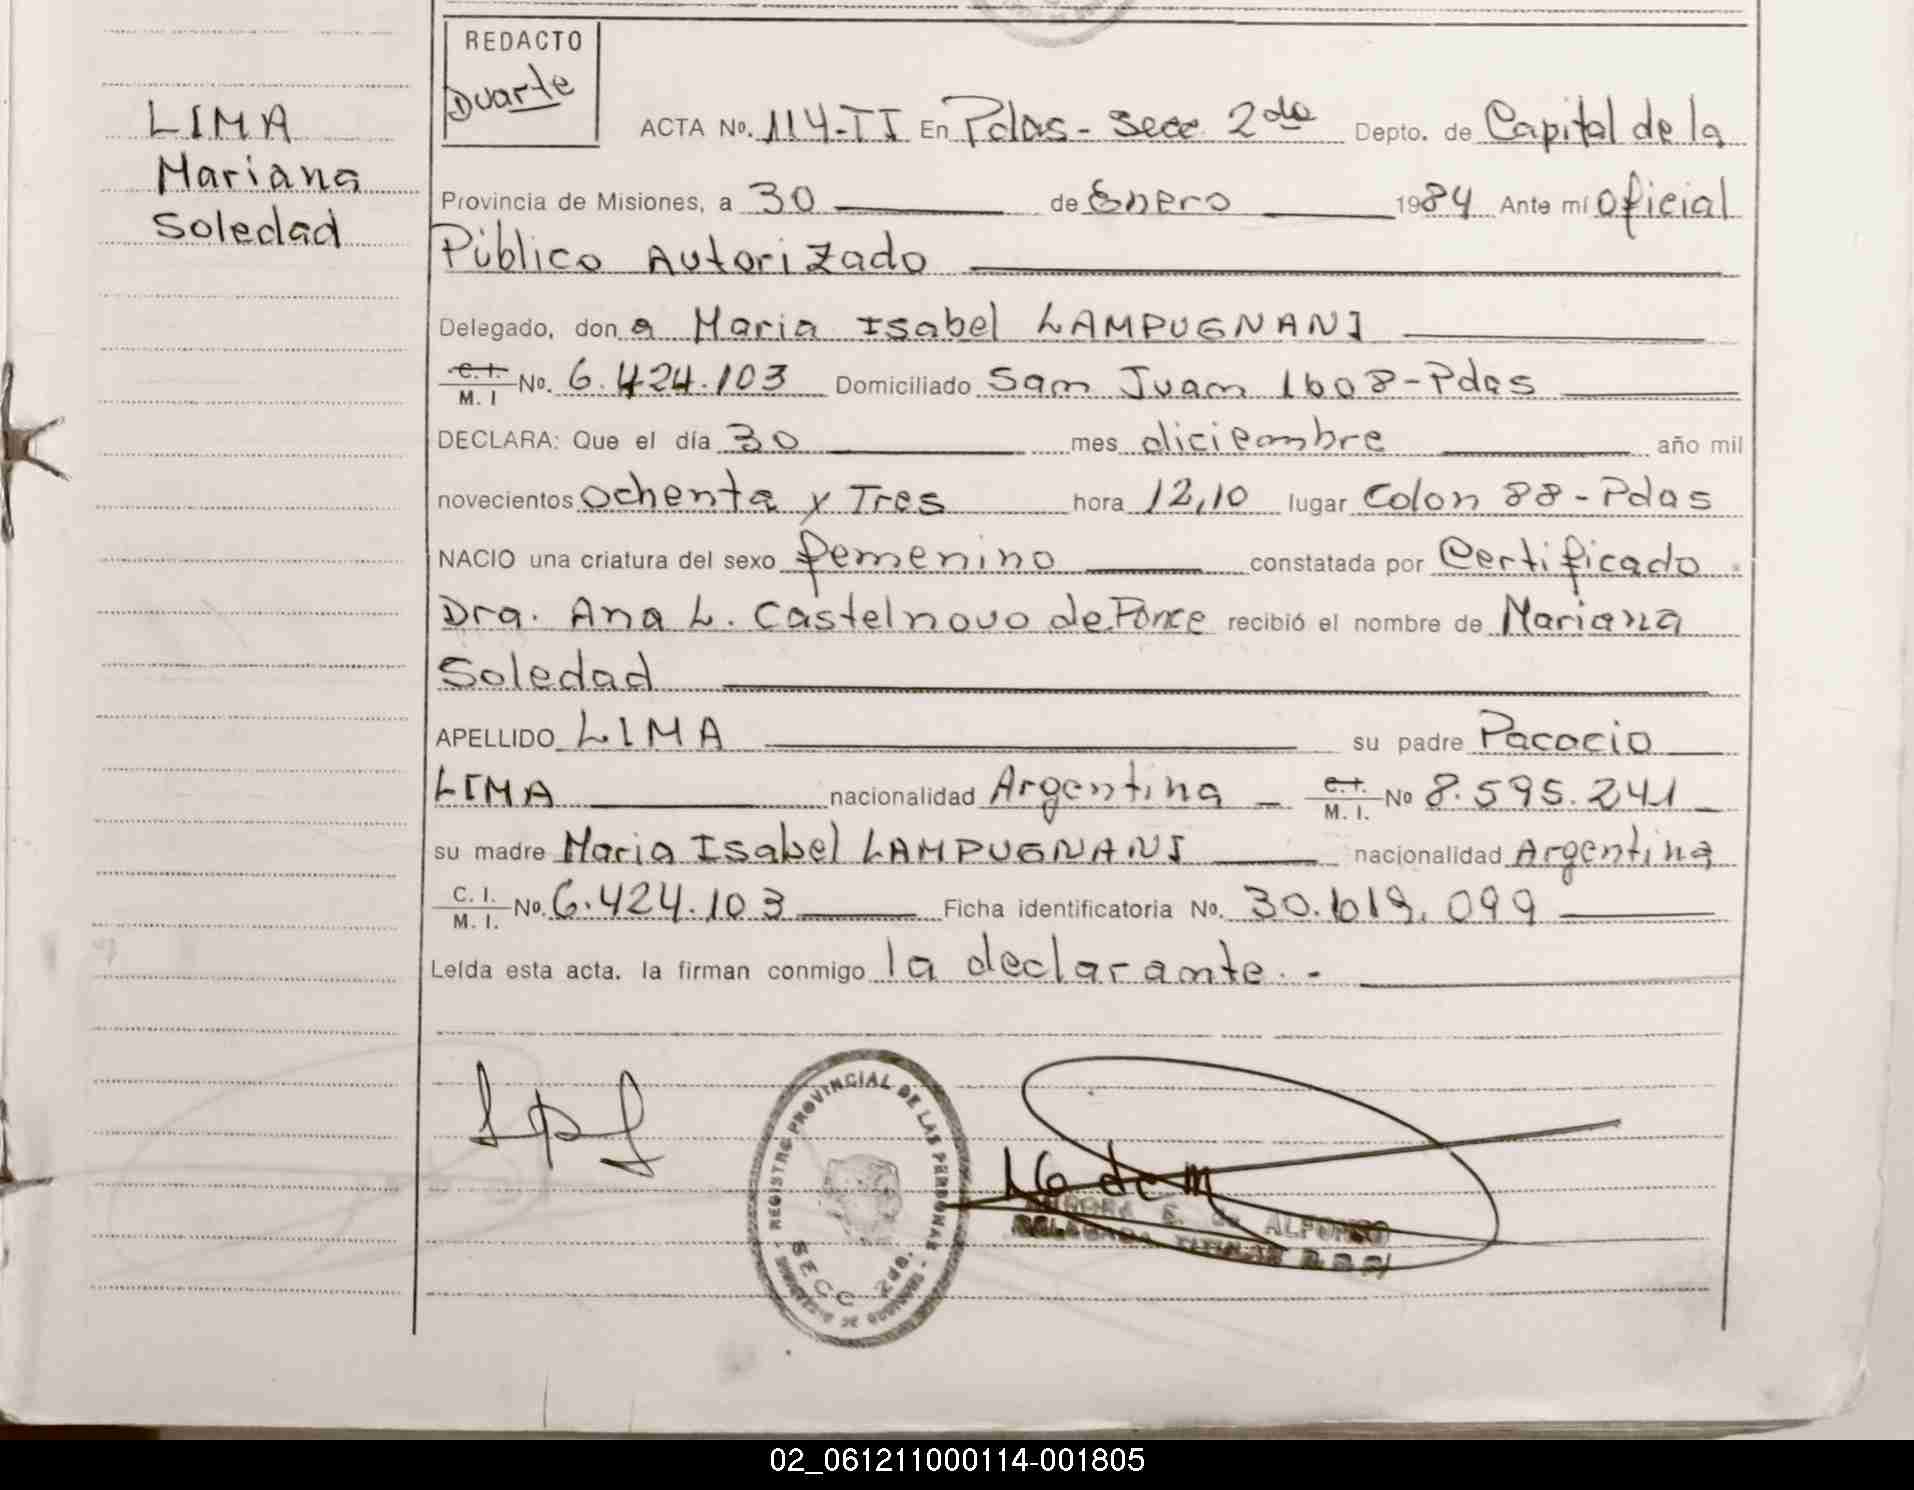 REDACTO
Duarte
LIMA
Mariana
Soledad
ACTA No. 114-II En Pdas - Secc. 2da Depto. de Capital de la
Provincia de Misiones, a 30 de Enero 1984 Ante mí Oficial
Público Autorizado
Delegado, don a Maria Isabel LAMPUGNANI
C. I. M. I No. 6.424.103 Domiciliado San Juan 1608 - Pdas
DECLARA: Que el día 30 mes diciembre año mil
novecientos ochenta y Tres hora 12,10 lugar Colon 88 - Pdas
NACIO una criatura del sexo femenino constatada por Certificado
Dra. Ana L. Castelnovo de Ponce recibió el nombre de Mariana
Soledad
APELLIDO LIMA su padre Pacacio
LIMA nacionalidad Argentina C. I. M. I. No 8.595.241
su madre Maria Isabel LAMPUGNANI nacionalidad Argentina
C. I. M. I. No. 6.424.103 Ficha identificatoria No. 30.619.099
Leída esta acta. la firman conmigo la declarante. -
REGISTRO PROVINCIAL DE LAS PERSONAS
SECC 2da.
E. de ALFONSO
DELEGADA TITULAR
02_061211000114-001805